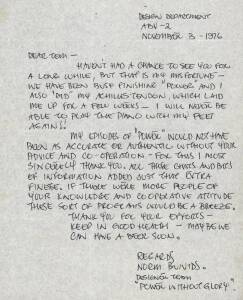 DESIGN DEPARTMENT
ABV-2
NOVEMBER 3 - 1976
DEAR TERRI -
HAVEN'T HAD A CHANCE TO SEE YOU FOR
A LONG WHILE, BUT THAT IS MY MISFORTUNE -
WE HAVE BEEN BUSY FINISHING "POWER" AND I
ALSO 'DID' MY ACHILLES TENDON, WHICH LAID
ME UP FOR A FEW WEEKS - I WILL NEVER BE
ABLE TO PLAY THE PIANO WITH MY FEET
AGAIN!!
MY EPISODES OF 'POWER' WOULD NOT HAVE
BEEN AS ACCURATE OR AUTHENTIC WITHOUT YOUR
ADVICE AND CO-OPERATION - FOR THIS I MOST
SINCERELY THANK YOU. ALL THOSE CHATS AND BITS
OF INFORMATION ADDED JUST THAT EXTRA
FINESSE. IF THERE WERE MORE PEOPLE OF
YOUR KNOWLEDGE AND CO-OPERATIVE ATTITUDE
THESE SORT OF PROGRAMS WOULD BE A BREEZE.
THANK YOU FOR YOUR EFFORTS -
KEEP IN GOOD HEALTH - MAYBE WE
CAN HAVE A BEER SOON.
REGARDS
NORM
DESIGN TEAM
"POWER WITHOUT GLORY".